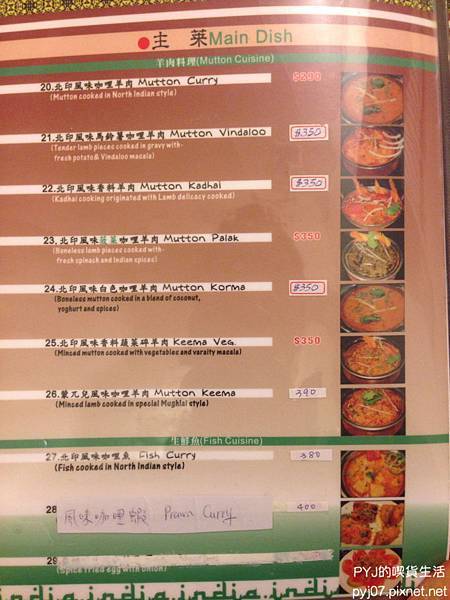 主 菜Main Dish
羊肉料理(Mutton Cuisine)
20.北印風味咖哩羊肉 Mutton Curry $290
(Mutton cooked in North Indian style)
21.北印風味馬鈴薯咖哩羊肉 Mutton Vindaloo $350
(Tender lamb pieces cooked in gravy with-
fresh potato& Vindaloo masala)
22.北印風味香料羊肉 Mutton Kadhai $350
(Kadhai cooking originated with Lamb delicacy cooked)
23.北印風味菠菜咖哩羊肉 Mutton Palak $350
(Boneless lamb pieces cooked with-
fresh spinach and Indian spices)
24.北印風味白色咖哩羊肉 Mutton Korma $350
(Boneless mutton cooked in a blend of coconut,
yoghurt and spices)
25.北印風味香料蔬菜碎羊肉 Keema Veg. $350
(Minced mutton cooked with vegetables and varaity masala)
26.蒙兀兒風味咖哩羊肉 Mutton Keema 390
(Minced lamb cooked in special Mughlai style)
生鮮魚(Fish Cuisine)
27.北印風味咖哩魚 Fish Curry 380
(Fish cooked in North Indian style)
28 風味咖哩蝦 Prawn Curry 400
29
(Spice fried egg with onion)
india.india.india.indi
PYJ的喫貨生活
pyj07.pixnet.net